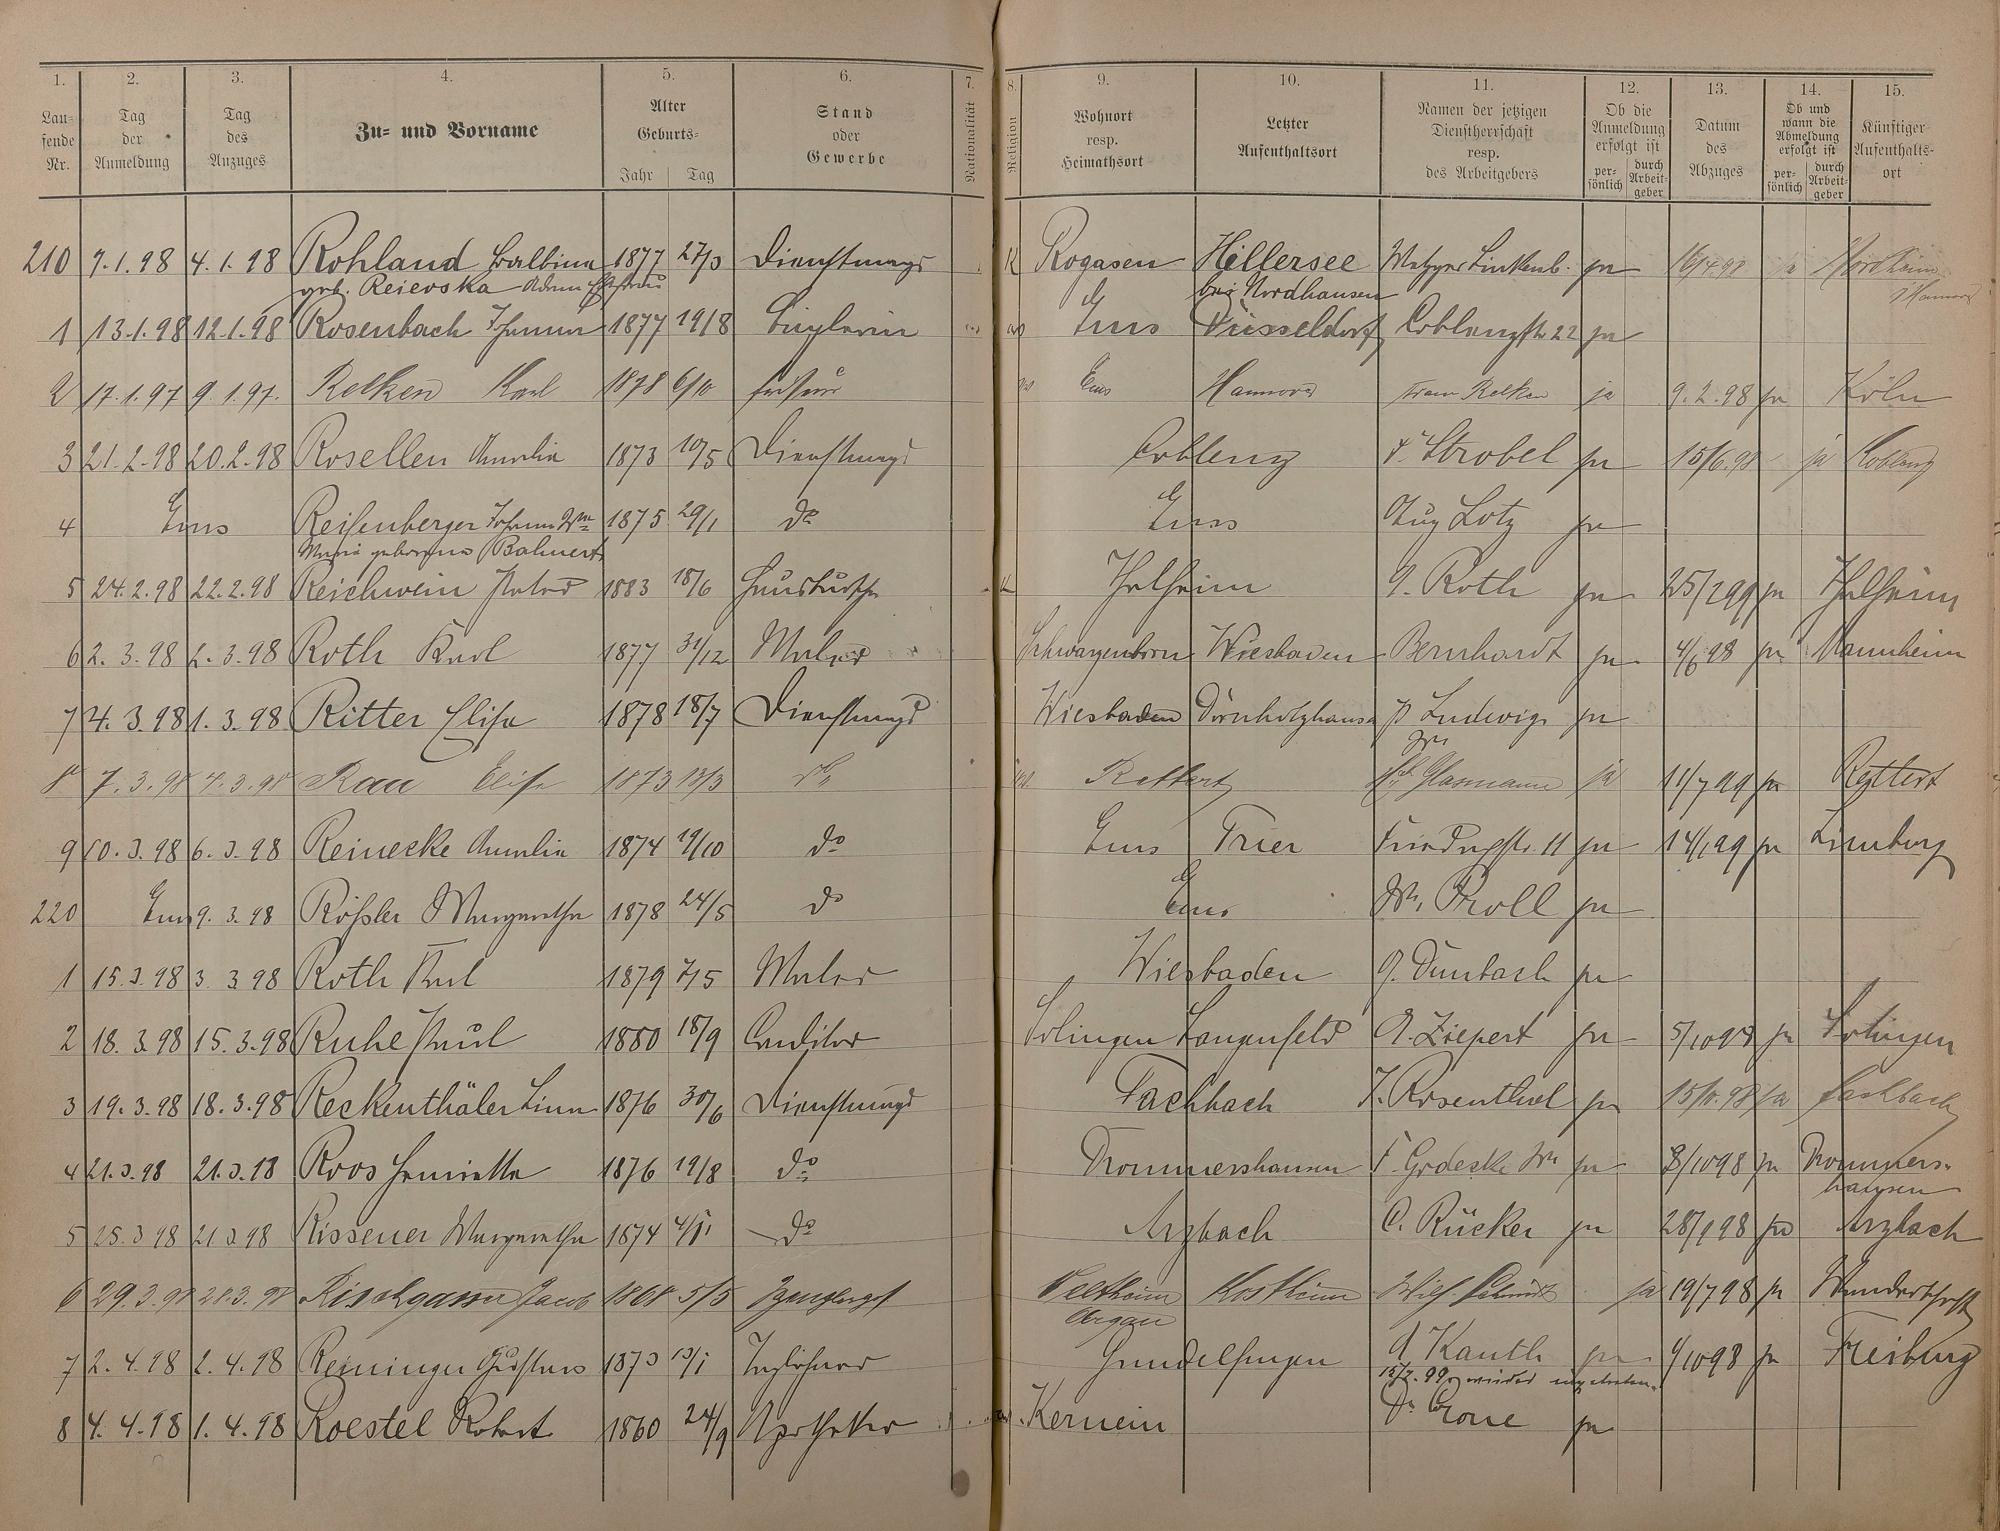 1. 2. 3. 4. 5. 6. 7. 8. 9. 10. 11. 12. 13. 14. 15.
Lau-
fende
Nr.
Tag
der
Anmeldung
Tag
des
Anzuges
Zu- und Vorname
Alter
Geburts-
Jahr Tag
Stand
oder
Gewerbe
Nationalität
Religion
Wohnort
resp.
Heimathsort
Letzter
Aufenthaltsort
Namen der jetzigen
Dienstherrschaft
resp.
des Arbeitgebers
Ob die
Anmeldung
erfolgt ist
per-
sönlich
durch
Arbeit-
geber
Datum
des
Abzuges
Ob und
wann die
Abmeldung
erfolgt ist
per-
sönlich
durch
Arbeit-
geber
Künftiger
Aufenthalts-
ort
210 7.1.98 4.1.98 Rohland Balbina 1877 27/3 Dienstmagd K Rogasen Hillersee Metzger Linkenb. ja 16/4 98 ja Nordheim
geb. Reievska bei Nordhausen Hannov
1 13.1.98 12.1.98 Rosenbach Johanna 1877 19/8 Büglerin Ems Düsseldorf Coblenzstr 22 ja
2 17.1.97 9.1.97. Relken Karl 1878 6/10 Friseur Ems Hannover Frau Relken ja 9.2.98 ja Köln
3 21.2.98 20.2.98 Rosellen Amalia 1873 10/5 Dienstmagd Coblenz F. Strobel ja 15/6.98 ja Koblenz
4 Ems Reisenberger Johann Wwe 1875 29/1 do Ems Aug Lotz ja
Maria geborene Bahnert
5 24.2.98 22.2.98 Reichwein Peter 1883 18/6 Hausbursche K Thalheim A. Roth ja 25/2 99 ja Thalheim
6 2.3.98 2.3.98 Roth Karl 1877 31/12 Maler Schwarzenborn Wiesbaden Bernhardt ja 4/6 98 ja Mannheim
7 4.3.98 1.3.98 Ritter Elisa 1878 18/7 Dienstmagd Wiesbaden Dörnholzhausen P Ludwig ja
Ww
8 7.3.98 4.3.98 Rau Elise 1873 13/3 do Rettert Glasmann ja 11/7 99 ja Rettert
9 10.3.98 6.3.98 Reinecke Amalia 1874 19/10 do Ems Trier Friedrichstr. 11 ja 14/1 99 ja Limburg
220 Ems 9.3.98 Rößler Margaretha 1878 24/5 do Ems W. Proll ja
1 15.3.98 3.3.98 Roth Karl 1879 7/5 Maler Wiesbaden G. Dunbach ja
2 18.3.98 15.3.98 Ruhe Paul 1880 18/9 Conditor Solingen Langenfeld A. Ziepert ja 5/10 98 ja Solingen
3 19.3.98 18.3.98 Reckenthäler Lina 1876 30/6 Dienstmagd Fachbach J. Rosenthal ja 15/10.98 ja Fachbach
4 21.3.98 21.3.98 Roos Henriette 1876 19/8 do Drommershausen F. Grdeske Ww ja 8/10 98 ja Drommers-
hausen
5 25.3.98 21.3.98 Rissener Margaretha 1874 4/11 do Arzbach C. Rücker ja 28/9 98 ja Arzbach
6 29.3.98 28.3.98 Rischgasser Jacob 1868 5/5 Veltheim Kostheim Wilh. Schmidt ja 19/7 98 ja Wanderschaft
Argau
7 2.4.98 2.4.98 Reininger Gustav 1873 13/1 Taglöhner Gundelfingen A Kauth ja 1/10 98 ja Freiburg
15/7.99 wieder eingetreten.
8 4.4.98 1.4.98 Roestel Robert 1860 24/9 Apotheker Kernein Dr Crone ja